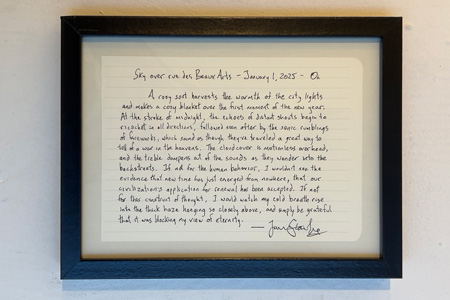 Sky over rue des Beaux Arts - January 1, 2025 -
A cozy soot harvests the warmth of the city lights
and makes a cozy blanket over the first moment of the new year.
At the stroke of midnight, the echoes of distant shouts begin to
ricochet in all directions, followed soon after by the sonic rumblings
of fireworks, which sound as though they've traveled a great way to
tell of a war in the heavens. The cloud cover is motionless overhead,
and the treble dampens out of the sounds as they wander into the
backstreets. If not for the human behavior, I wouldn't see the
evidence that new time has just emerged from nowhere, that our
civilization's application for renewal has been accepted. If not
for this construct of thought, I would watch my cold breath rise
into the thick haze hanging so closely above, and simply be grateful
that it was blocking my view of eternity.